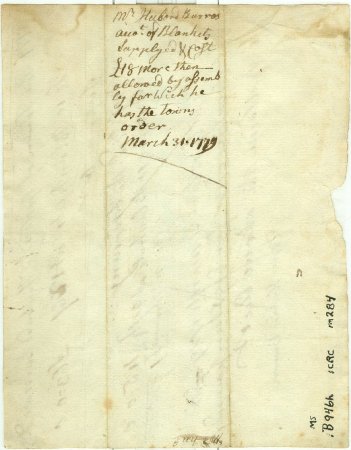 Mr Hubbard Burros
acct. of Blankets
Supplyed & Cost
£18 more then
allowed by assem
bly for wich he
has the Towns
order
March 31. 1779
MS
B946h 1CRC m284